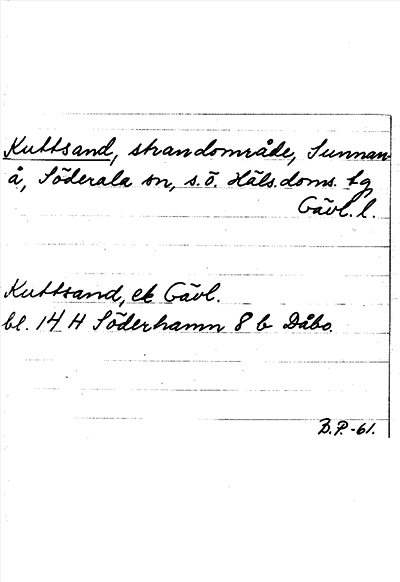 Kuttsand, strandområde, Sunnan-
å, Söderala sn, s.ö. Häls.doms. tg
Gävl. l.
Kuttsand, ek Gävl.
bl. 14 H Söderhamn 8 b Dåbo.
B.P.-61.